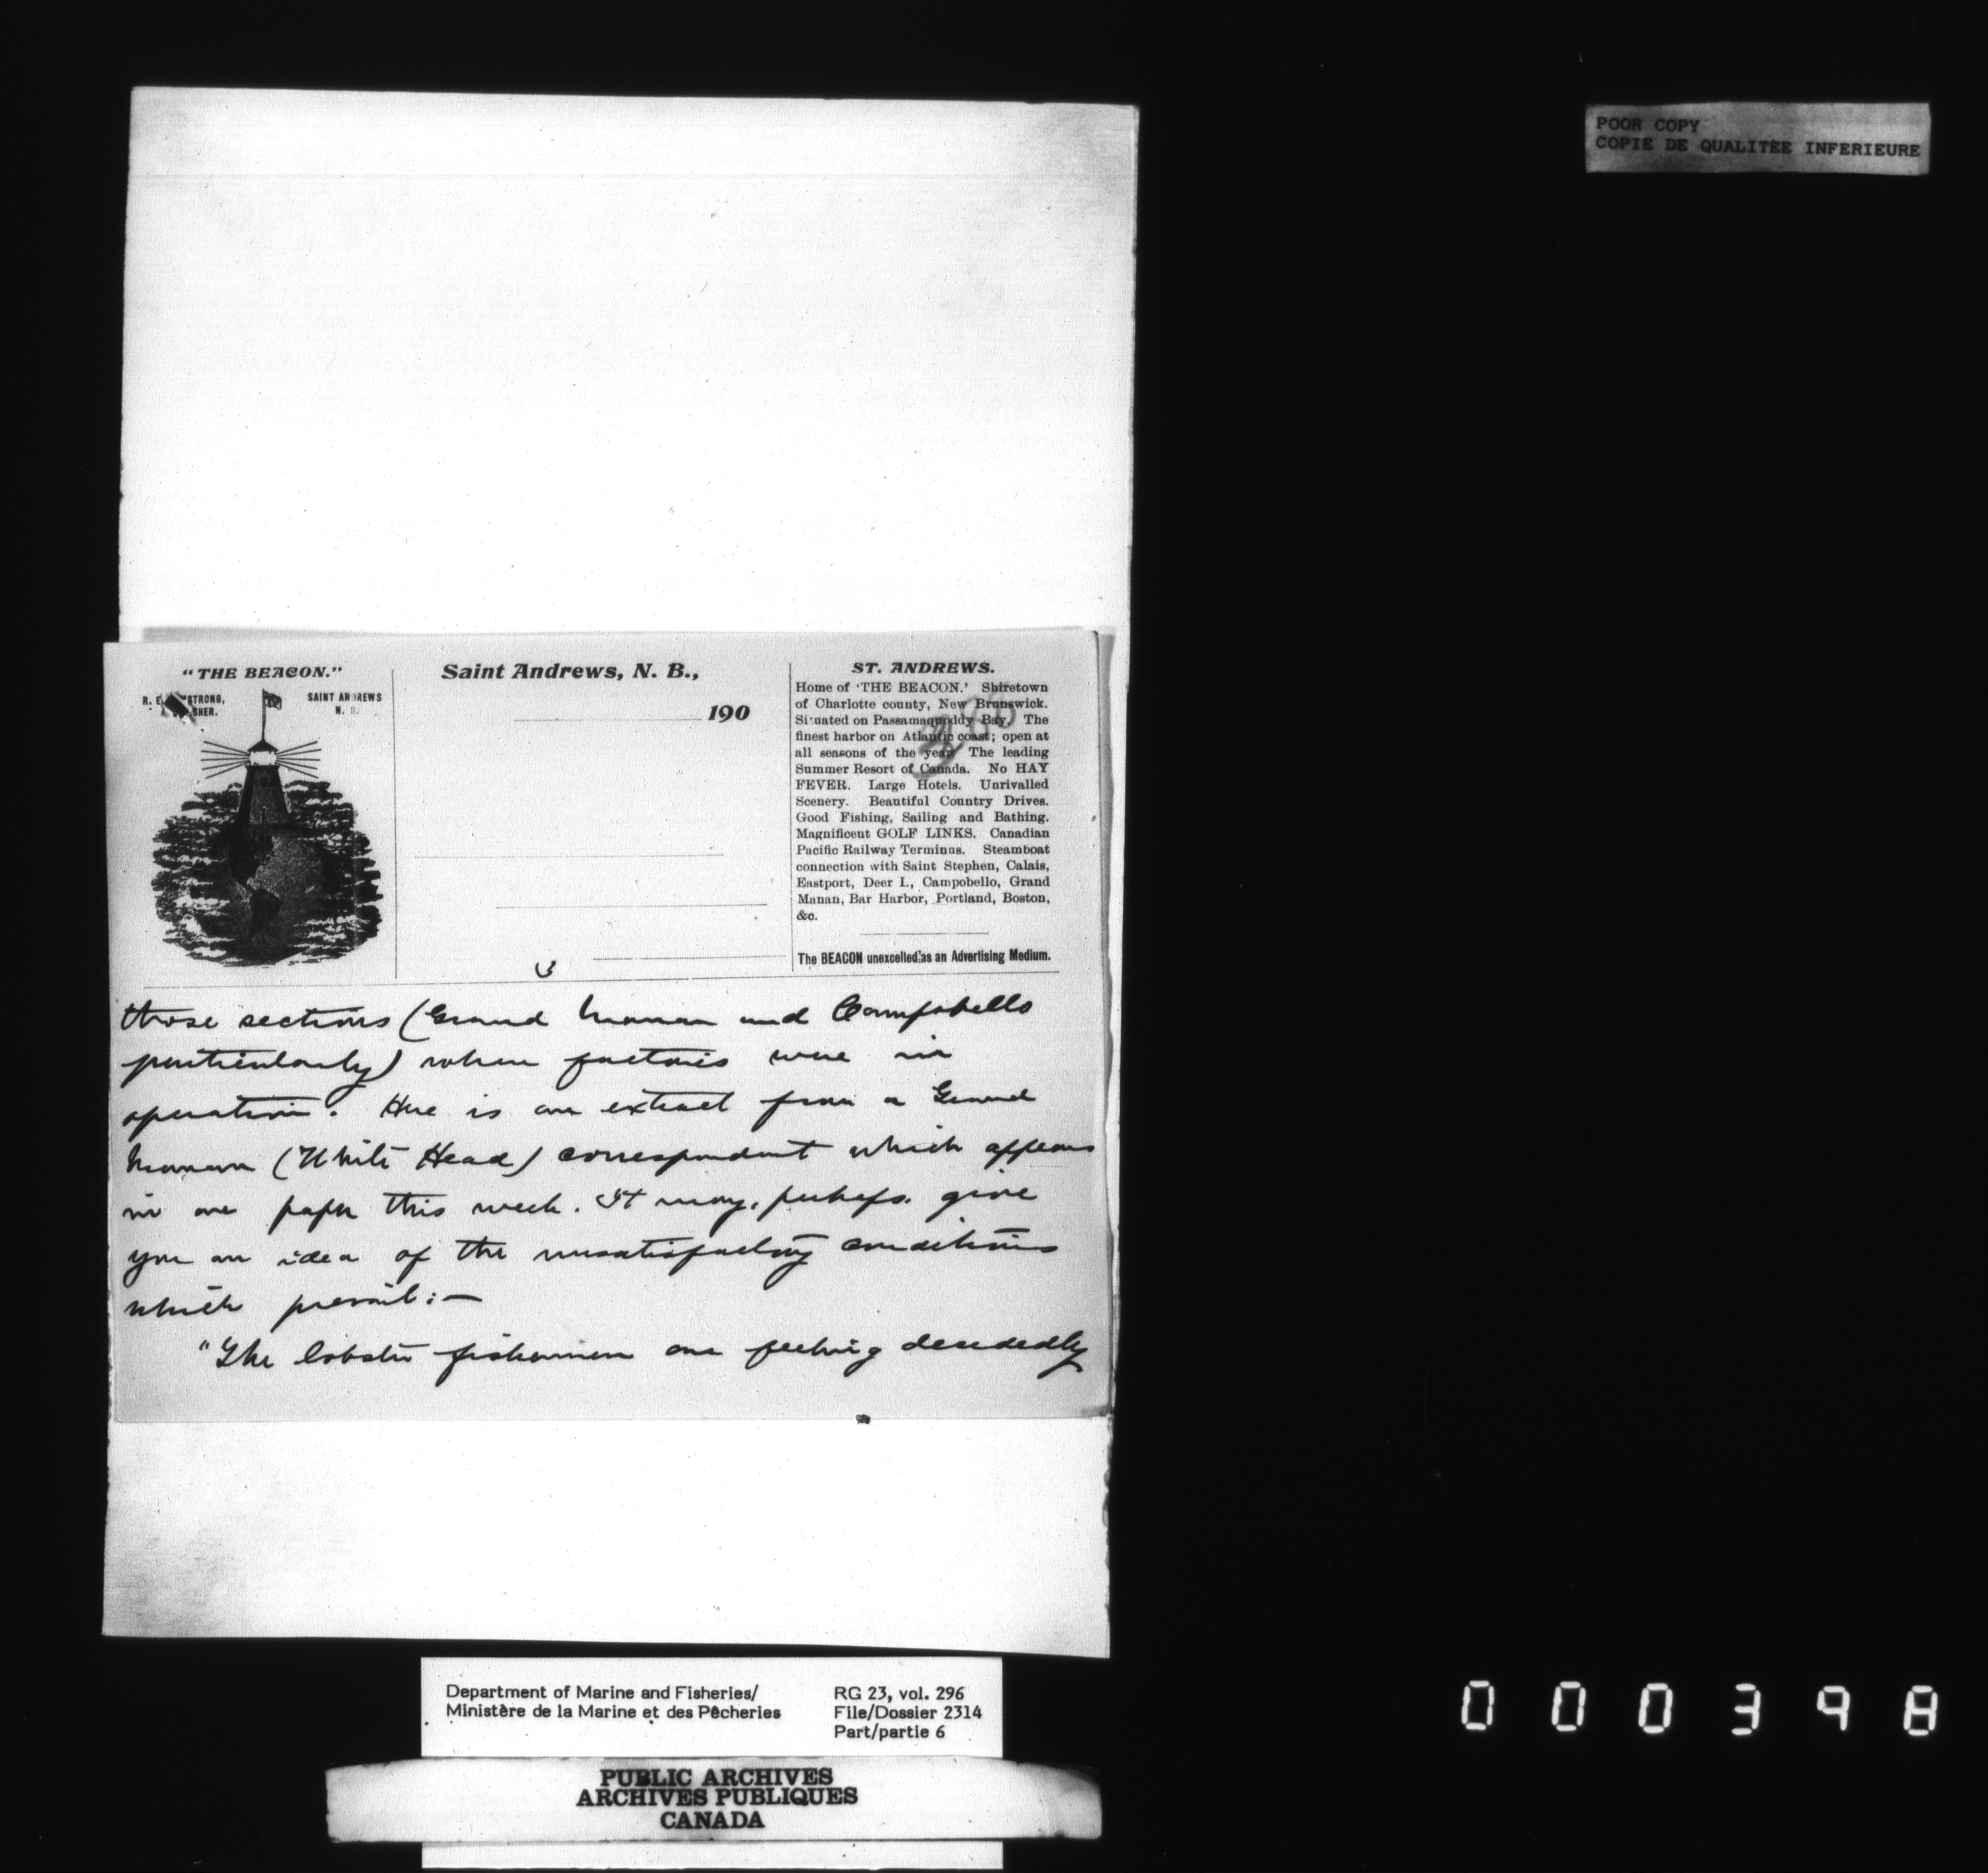 POOR COPY
COPIE DE QUALITÉE INFERIEURE
"THE BEACON."
R. E. STRONG,
SHER.
SAINT ANDREWS
N. B.
Saint Andrews, N. B.,
190
ST. ANDREWS.
Home of 'THE BEACON.' Shiretown
of Charlotte county, New Brunswick.
Situated on Passamaquoddy Bay. The
finest harbor on Atlantic coast; open at
all seasons of the year. The leading
Summer Resort of Canada. No HAY
FEVER. Large Hotels. Unrivalled
Scenery. Beautiful Country Drives.
Good Fishing, Sailing and Bathing.
Magnificent GOLF LINKS. Canadian
Pacific Railway Terminus. Steamboat
connection with Saint Stephen, Calais,
Eastport, Deer I., Campobello, Grand
Manan, Bar Harbor, Portland, Boston,
&c.
The BEACON unexcelled as an Advertising Medium.
3
those sections (Grand Manan and Campobello
particularly) when factories were in
operation. Here is an extract from a Grand
Manan (White Head) correspondent which appears
in our paper this week. It may, perhaps, give
you an idea of the unsatisfactory conditions
which prevail:—
"The lobster fishermen are feeling decidedly
Department of Marine and Fisheries/
Ministère de la Marine et des Pêcheries
RG 23, vol. 296
File/Dossier 2314
Part/partie 6
PUBLIC ARCHIVES
ARCHIVES PUBLIQUES
CANADA
000398